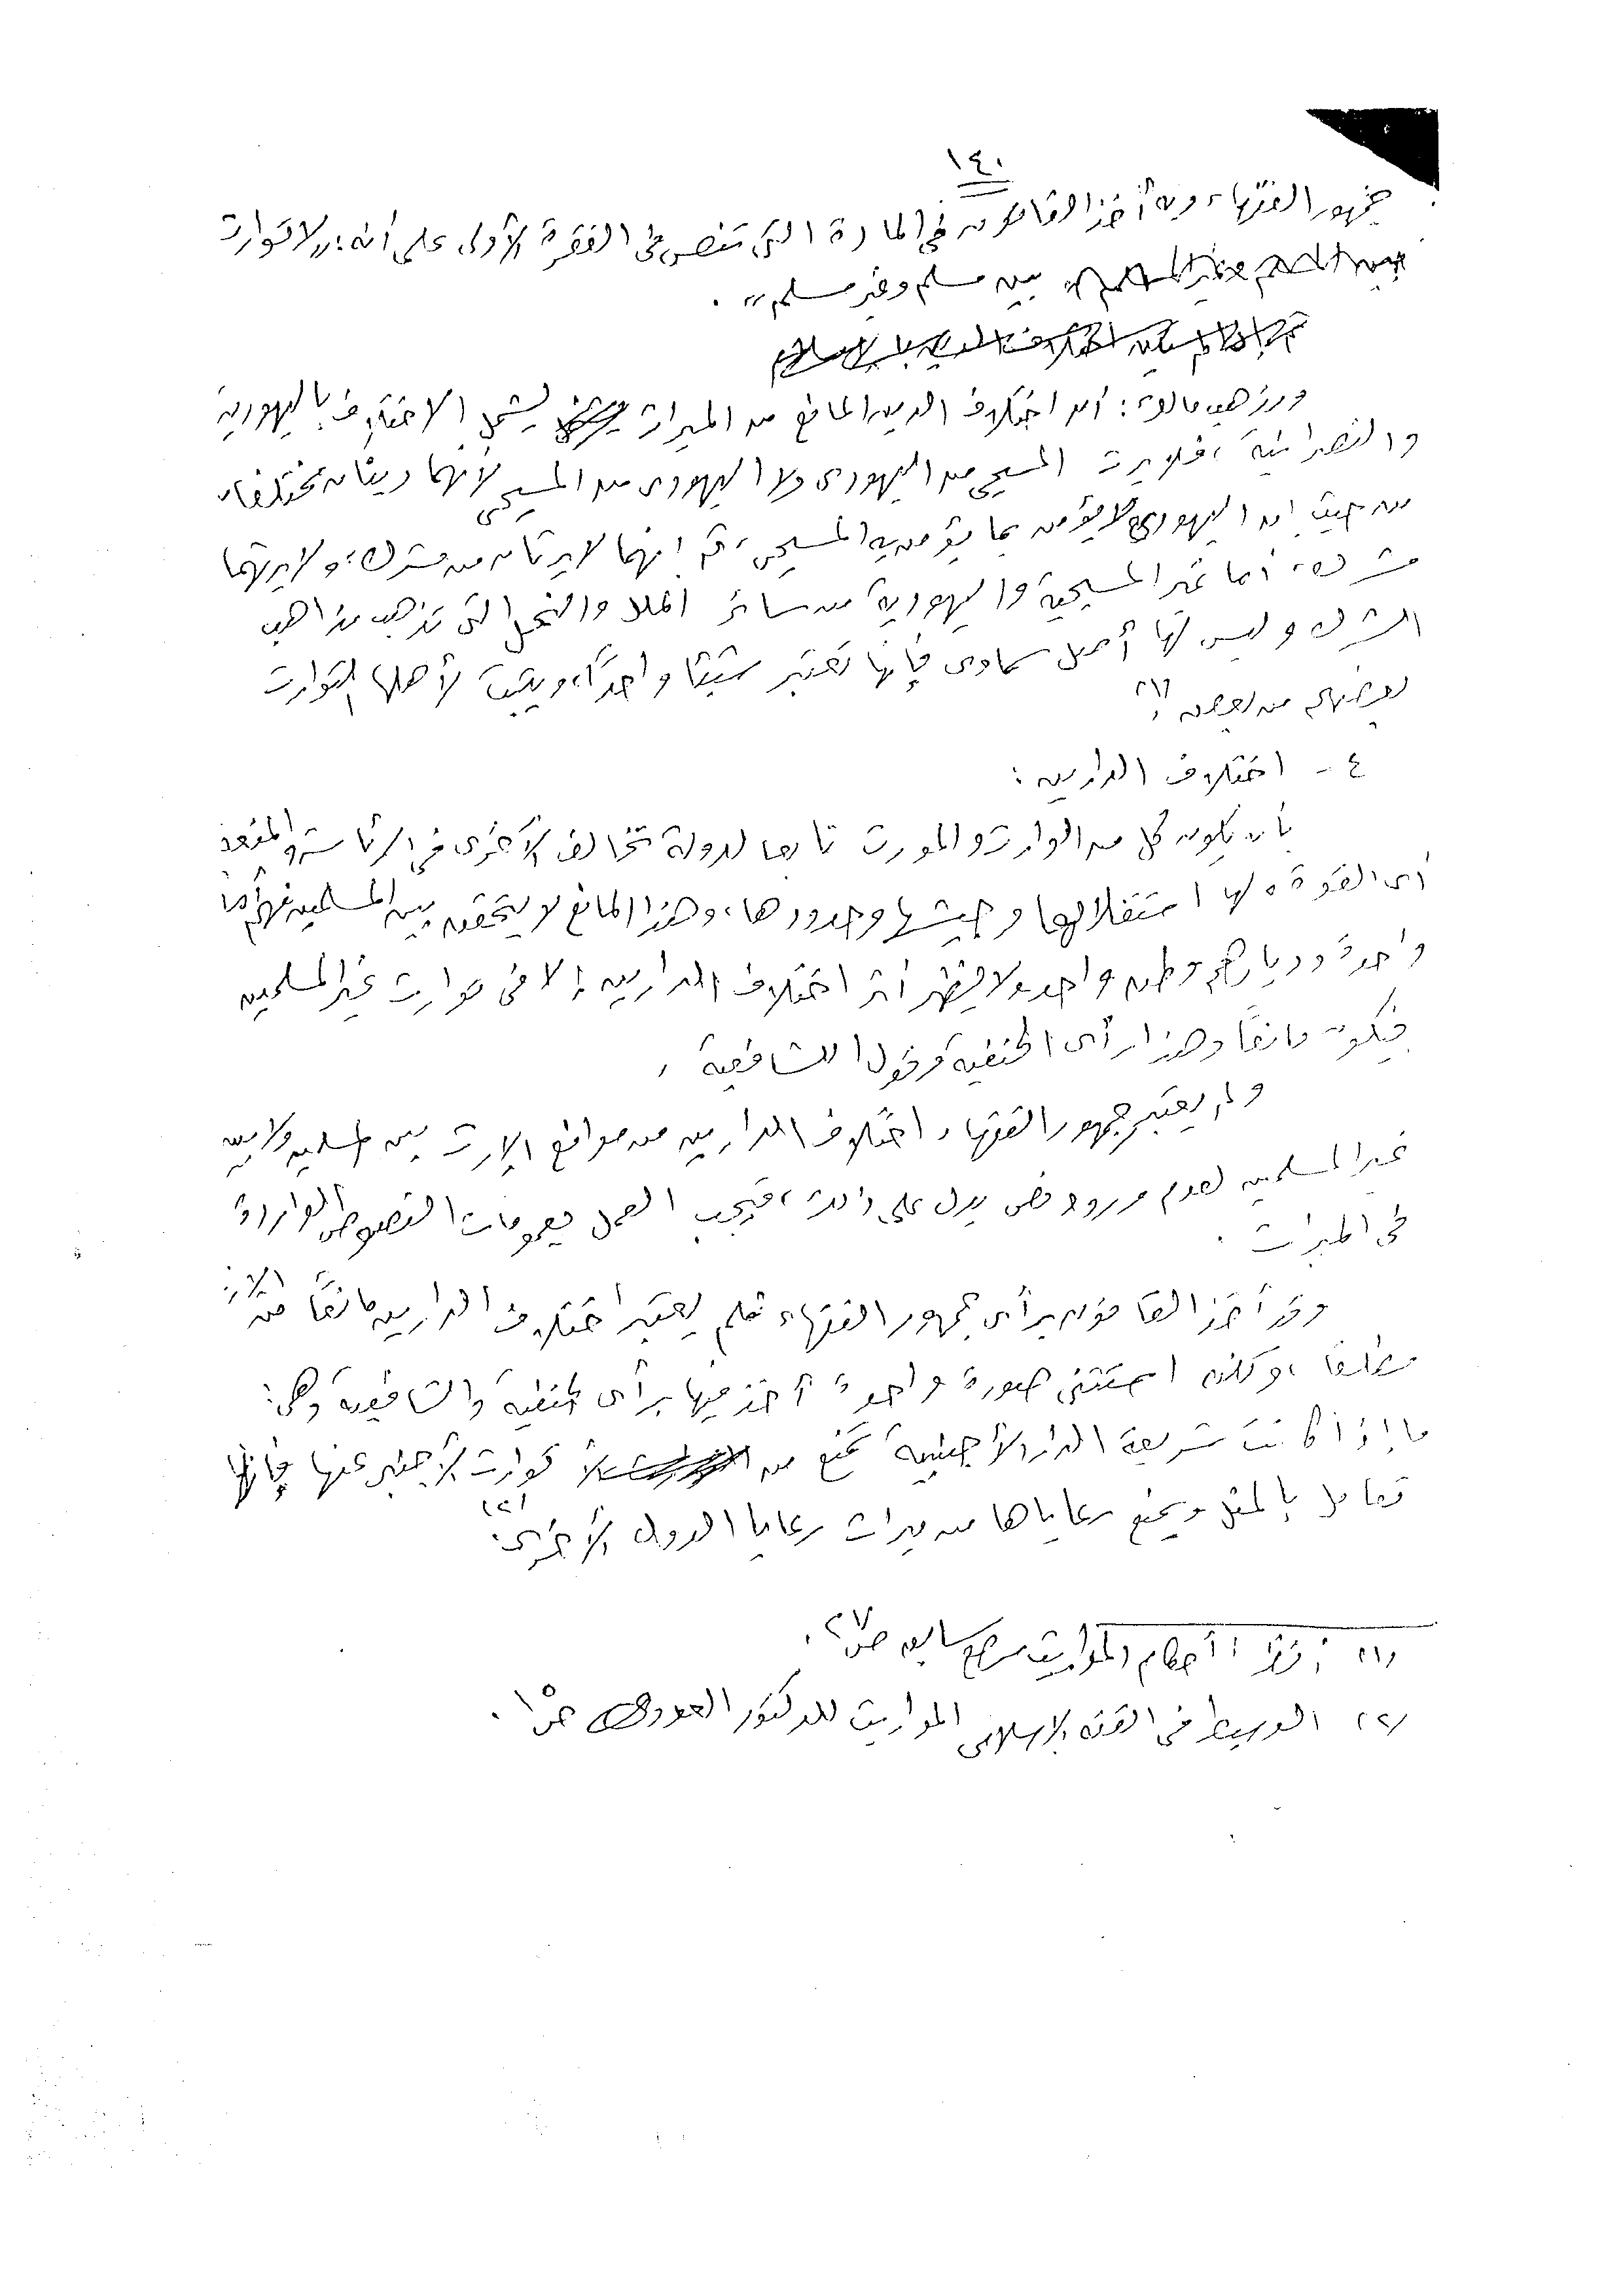 ١٤٠
جمهور الفقهاء وبه أخذ القانون في المادة التي تنص في الفقرة الأولى على أنه: "لا توارث
بين مسلم وغير مسلم".
ومذهب مالك: أن اختلاف الدين المانع من الميراث يشمل الاختلاف باليهودية
والنصرانية، فلا يرث المسيحي من اليهودي ولا اليهودي من المسيحي لأنهما دينان مختلفان
من حيث إن اليهودي لا يؤمن بما يؤمن به المسيحي، ثم إنهما لا يرثان من مشرك، ولا يرثهما
مشرك، أما غير المسيحية واليهودية من سائر الملل والنحل التي تذهب مذاهب
الشرك وليس لها أصل سماوي فإنها تعتبر شيئا واحدًا، ويثبت لأهلها التوارث
بعضهم من بعض (١).
٤ - اختلاف الدارين:
بأن يكون كل من الوارث والمورث تابعا لدولة تخالف الأخرى في الرئاسة والمنعة
أي القوة لها استقلالها وجيشها وحدودها، وهذا المانع لا يتحقق بين المسلمين فهم أمة
واحدة وديارهم وطن واحد ولا يظهر أثر اختلاف الدارين إلا في توارث غير المسلمين
فيكون مانعًا وهذا رأي الحنفية وقول الشافعية.
ولم يعتبر جمهور الفقهاء اختلاف الدارين من موانع الإرث بين المسلمين ولا بين
غير المسلمين لعدم ورود نص يدل على ذلك، فيجب العمل بعمومات النصوص الواردة
في الميراث.
وقد أخذ القانون برأي جمهور الفقهاء فلم يعتبر اختلاف الدارين مانعًا من الإرث
مطلقا، ولكنه استثنى صورة واحدة أخذ فيها برأي الحنفية والشافعية وهي:
ما إذا كانت شريعة الدار الأجنبية تمنع من توارث الأجنبي عنها فإنها
تعامل بالمثل ويمنع رعاياها من ميراث رعايا الدولة الأخرى (٢).
(١) انظر: أحكام المواريث مرجع سابق ص ٢٧.
(٢) الوسيط في الفقه الإسلامي المواريث للدكتور